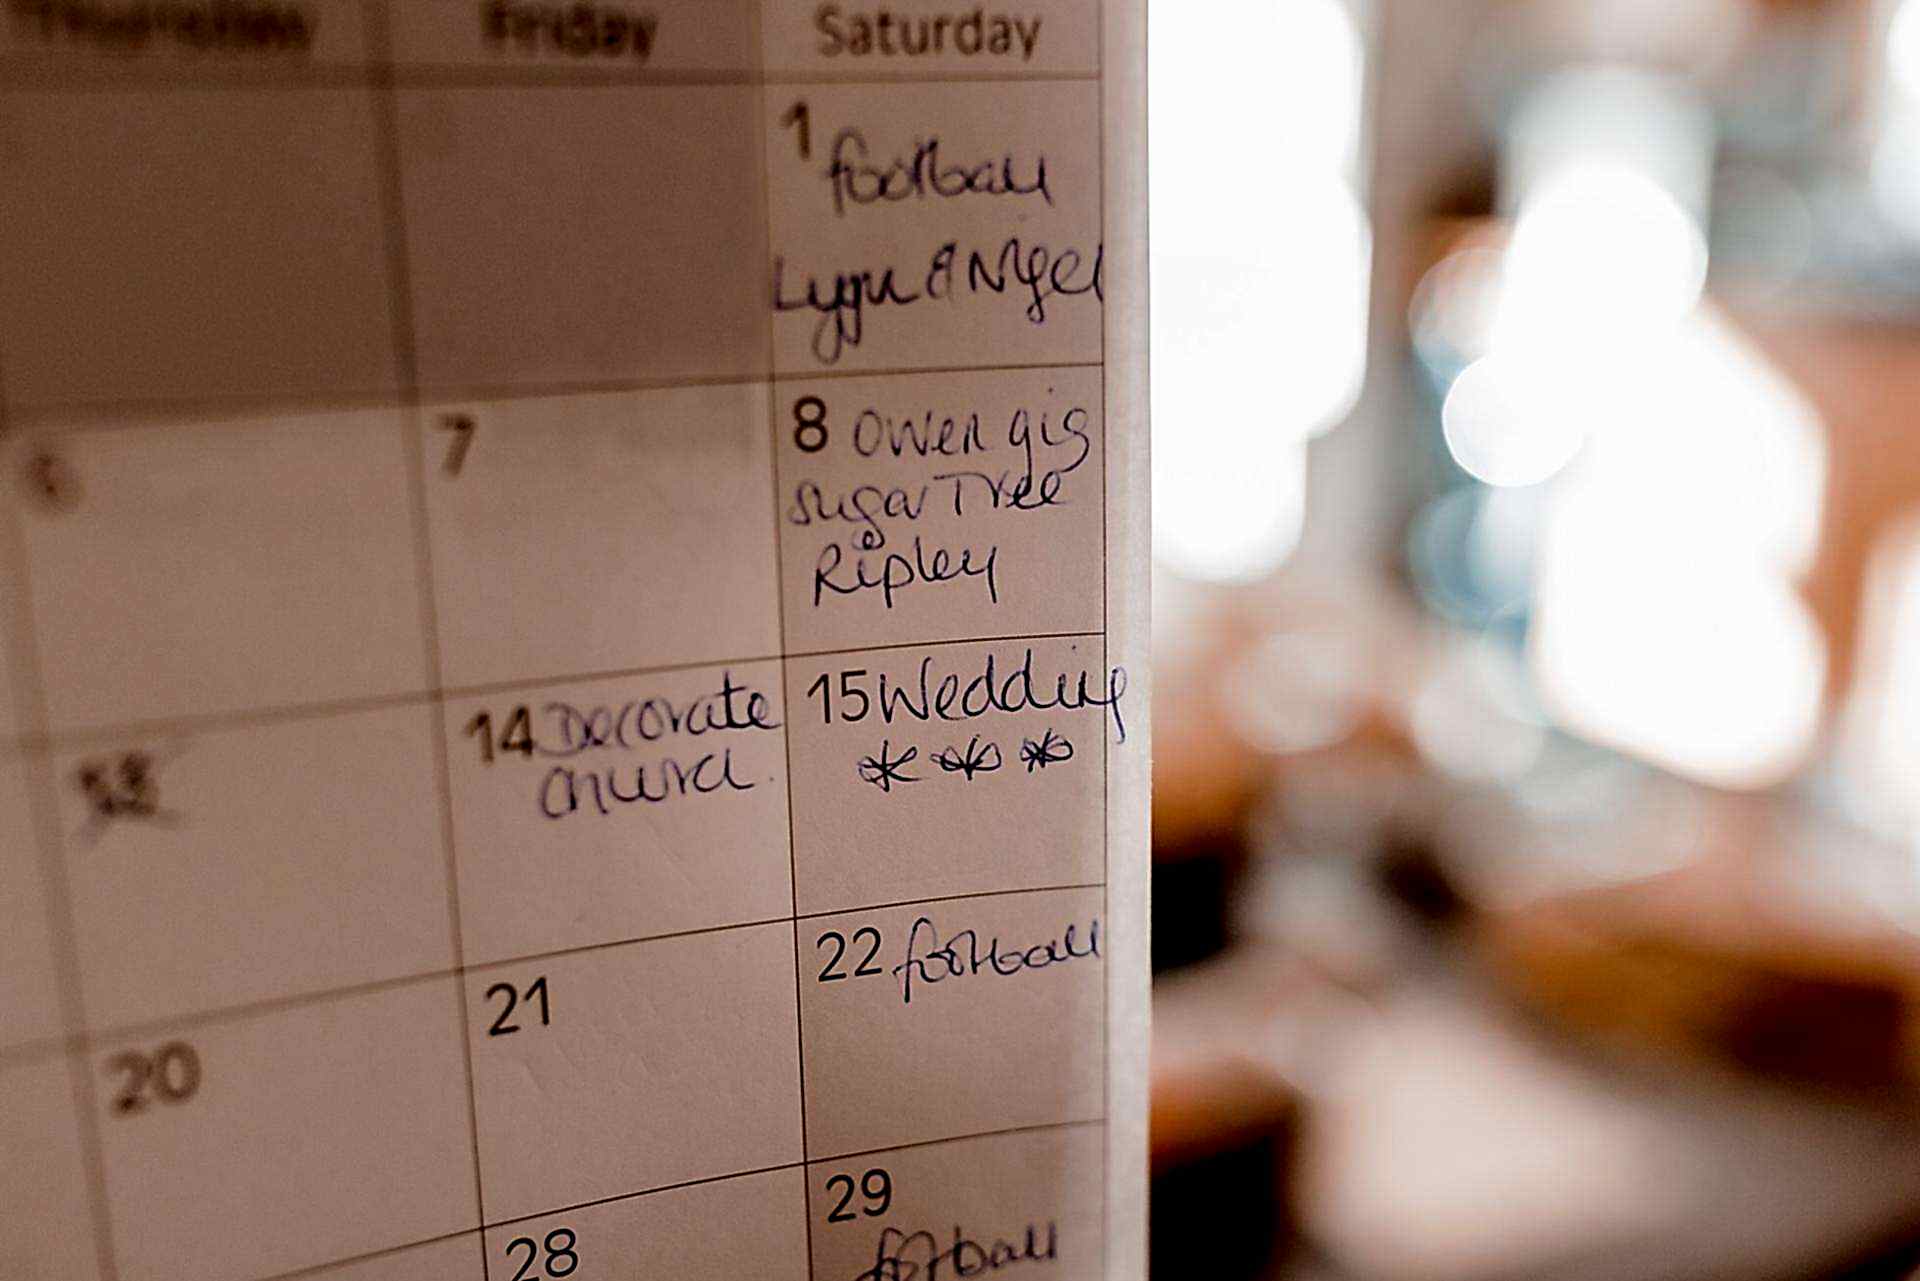 Thursday Friday Saturday
1 football
Lynn & Nigel
6 7 8 Owen gig
Sugar Tree
Ripley
13 14 Decorate 15 Wedding
church ***
20 21 22 football
28 29
football